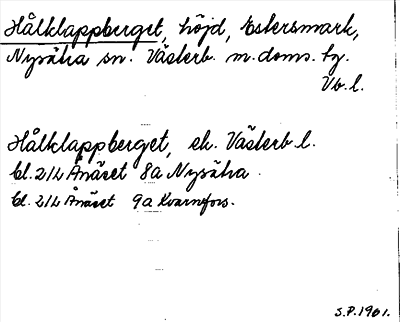 Hålklappberget, höjd, Estersmark,
Nysätra sn. Västerb. m. doms. tg.
Vb. l.
Hålklappberget, ek. Västerb. l.
bl. 21L Ånäset 8a Nysätra
bl. 21L Ånäset 9a Kvarnfors.
S.P. 1961.